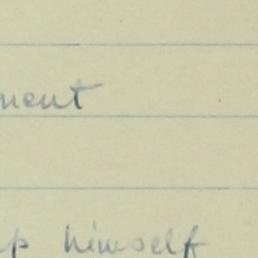 ment
up himself